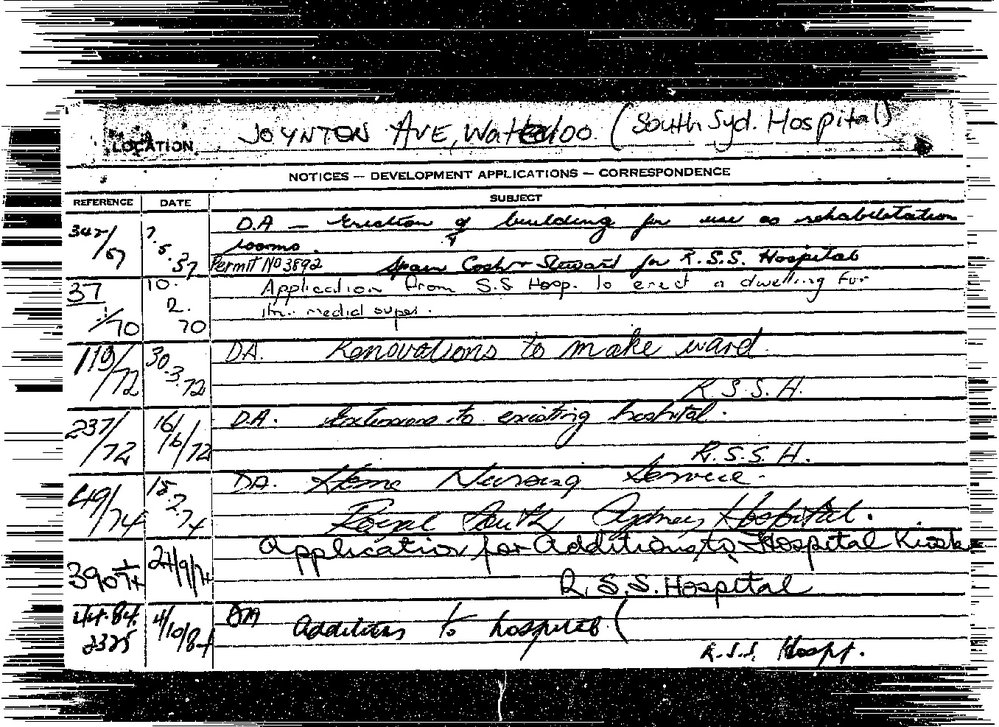 LOCATION JOYNTON AVE, Waterloo. (South Syd. Hospital)
NOTICES — DEVELOPMENT APPLICATIONS — CORRESPONDENCE
REFERENCE DATE SUBJECT
347/57 7.5.57 D.A — Erection of building for use as rehabilitation
rooms.
Permit No 3892 Spain Cosh & Steward for R.S.S. Hospital
37/70 10.2.70 Application from S.S Hosp. to erect a dwelling for
the medical super.
119/72 30.3.72 D.A. Renovations to make ward.
R.S.S.H.
237/72 16/6/72 D.A. Extensions to existing hospital.
R.S.S.H.
49/74 15.2.74 D.A. Home Nursing Service.
Royal South Sydney Hospital.
390/74 24/9/74 Application for Additions to Hospital Kiosk
R.S.S. Hospital
44.84.2325 4/10/84 DA Additions to hospital (
R.S.S. Hospt.